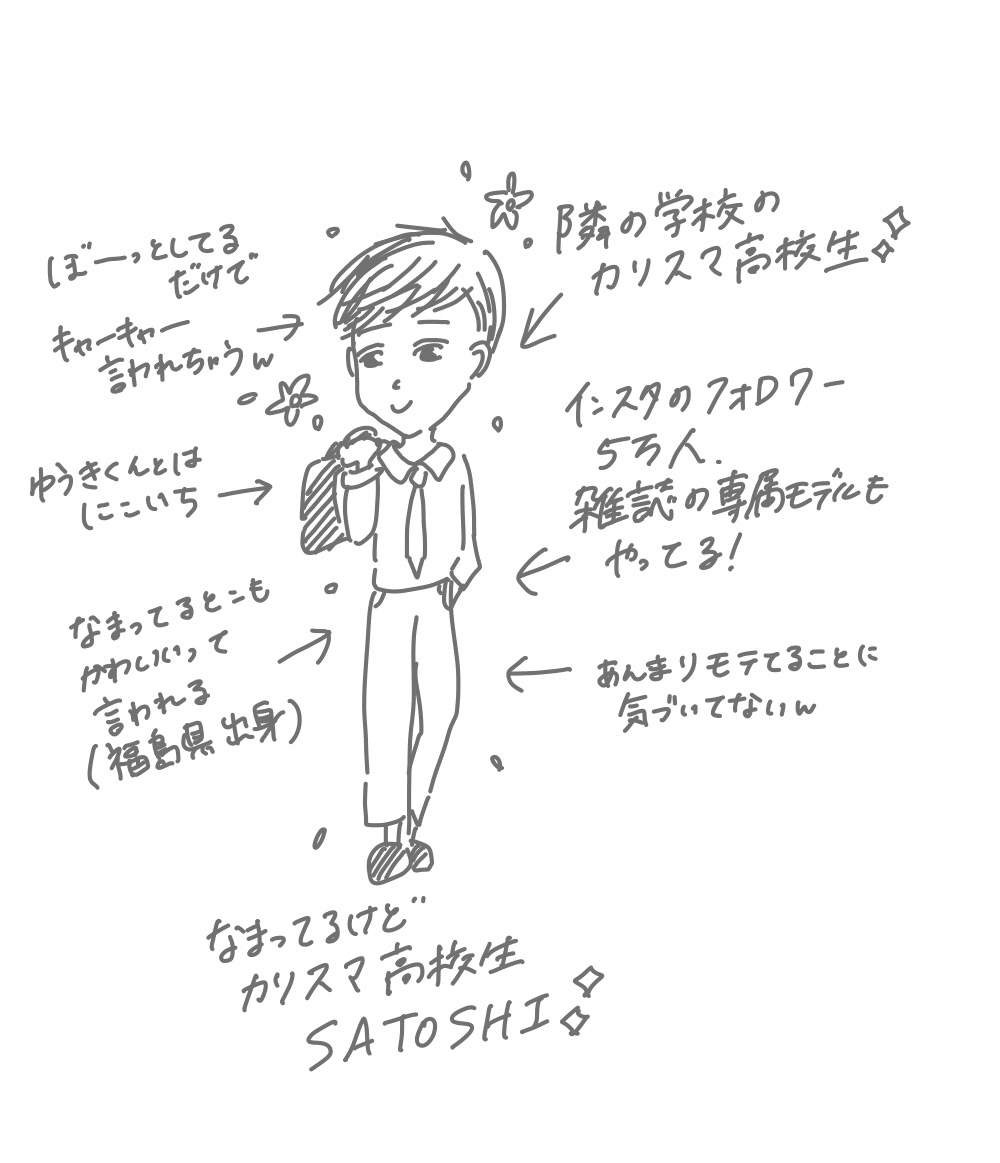 隣の学校の
カリスマ高校生
ぼーっとしてる
だけで
キャーキャー
言われちゃうw
インスタのフォロワー
5万人.
雑誌の専属モデルも
やってる!
ゆうきくんとは
にこいち
なまってるとこも
かわいいって
言われる
(福島県出身)
あんまりモテてることに
気づいてないw
なまってるけど
カリスマ高校生
SATOSHI